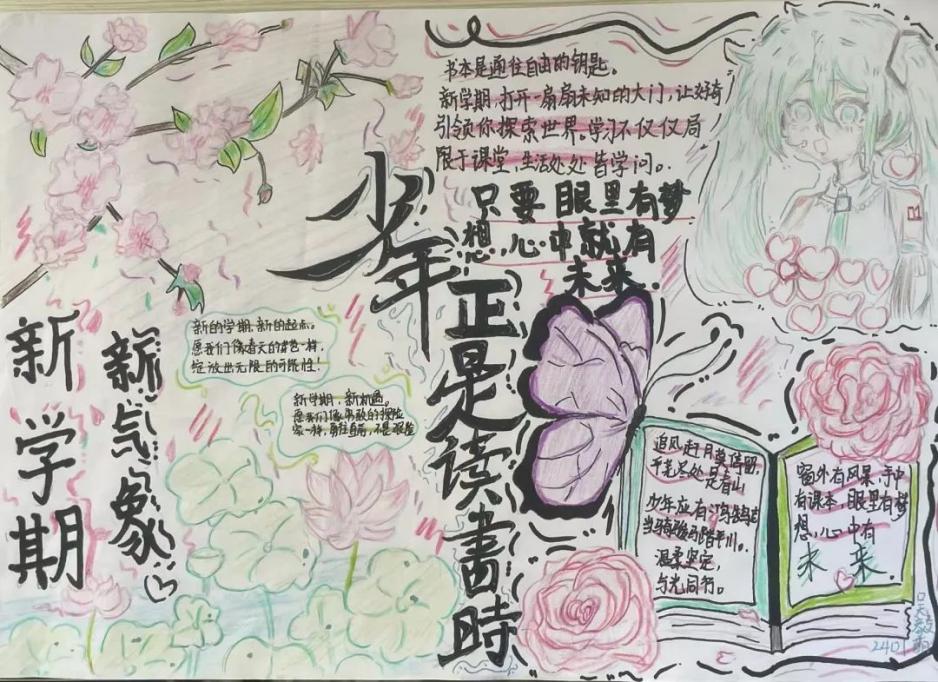 书本是通往自由的钥匙。
新学期,打开一扇扇未知的大门,让好奇
引领你探索世界。学习不仅仅局
限于课堂,生活处处皆学问。
只要眼里有梦
想,心中就有
未来.
少年正是读書時
新学期
新气象
新的学期,新的起点。
愿我们像春天的花一样,
绽放出无限的可能性!
新学期,新机遇。
愿我们像勇敢的探险
家一样,勇往直前,不畏艰险
追风赶月莫停留,
平芜尽处是春山
少年应有鸿鹄志
当骑骏马踏平川。
温柔坚定,
与光同行。
窗外有风景,手中
有课本,眼里有梦
想,心中有
未来.
240